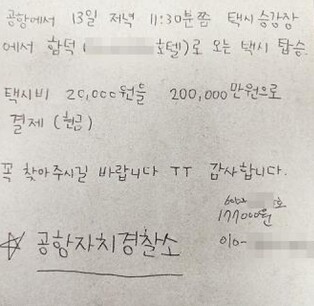 공항에서 13일 저녁 11:30분쯤 택시 승강장
에서 함덕 ( 호텔)로 오는 택시 탑승.
택시비 20,000원을 200,000만원으로
결제 (현금)
꼭 찾아주시길 바랍니다 ㅜㅜ 감사합니다.
호
177000원
☆ 공항자치경찰소 010-